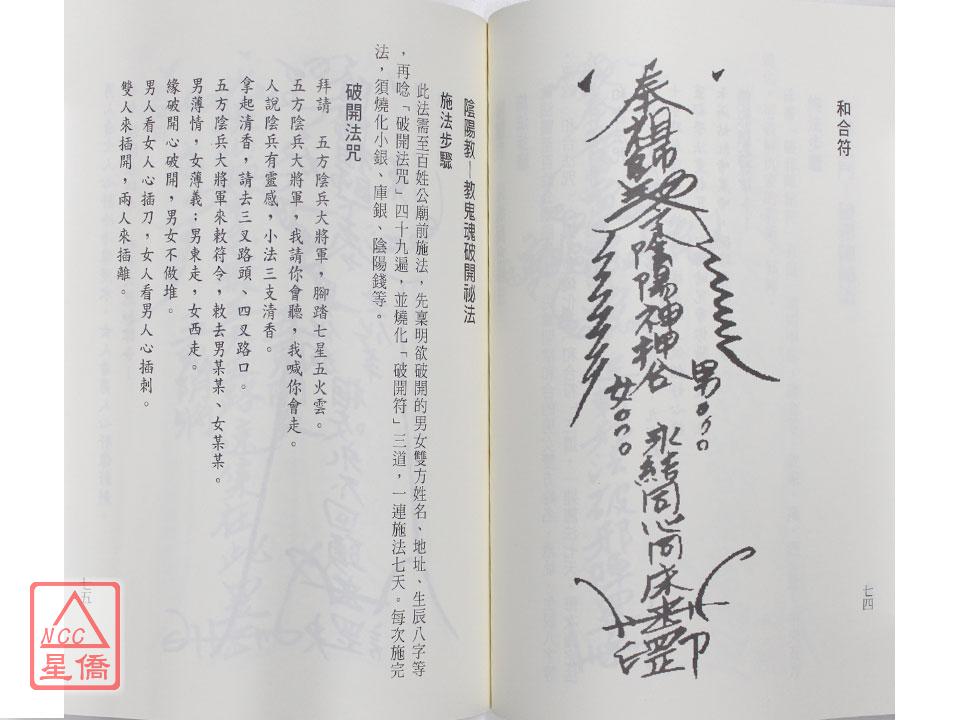 和合符
奉
陰陽神押合
男
女
永結同心同床
罡印
七四
陰陽教—教鬼魂破開祕法
施法步驟
此法需至百姓公廟前施法，先稟明欲破開的男女雙方姓名、地址、生辰八字等
，再唸「破開法咒」四十九遍，並燒化「破開符」三道，一連施法七天。每次施完
法，須燒化小銀、庫銀、陰陽錢等。
破開法咒
拜請　五方陰兵大將軍，腳踏七星五火雲。
五方陰兵大將軍，我請你會聽，我喊你會走。
人說陰兵有靈感，小法三支清香。
拿起清香，請去三叉路頭、四叉路口。
五方陰兵大將軍來敕符令，敕去男某某、女某某。
男薄情，女薄義；男東走，女西走。
緣破開心破開，男女不做堆。
男人看女人心插刀，女人看男人心插刺。
雙人來插開，兩人來插離。
七五
NCC
星僑